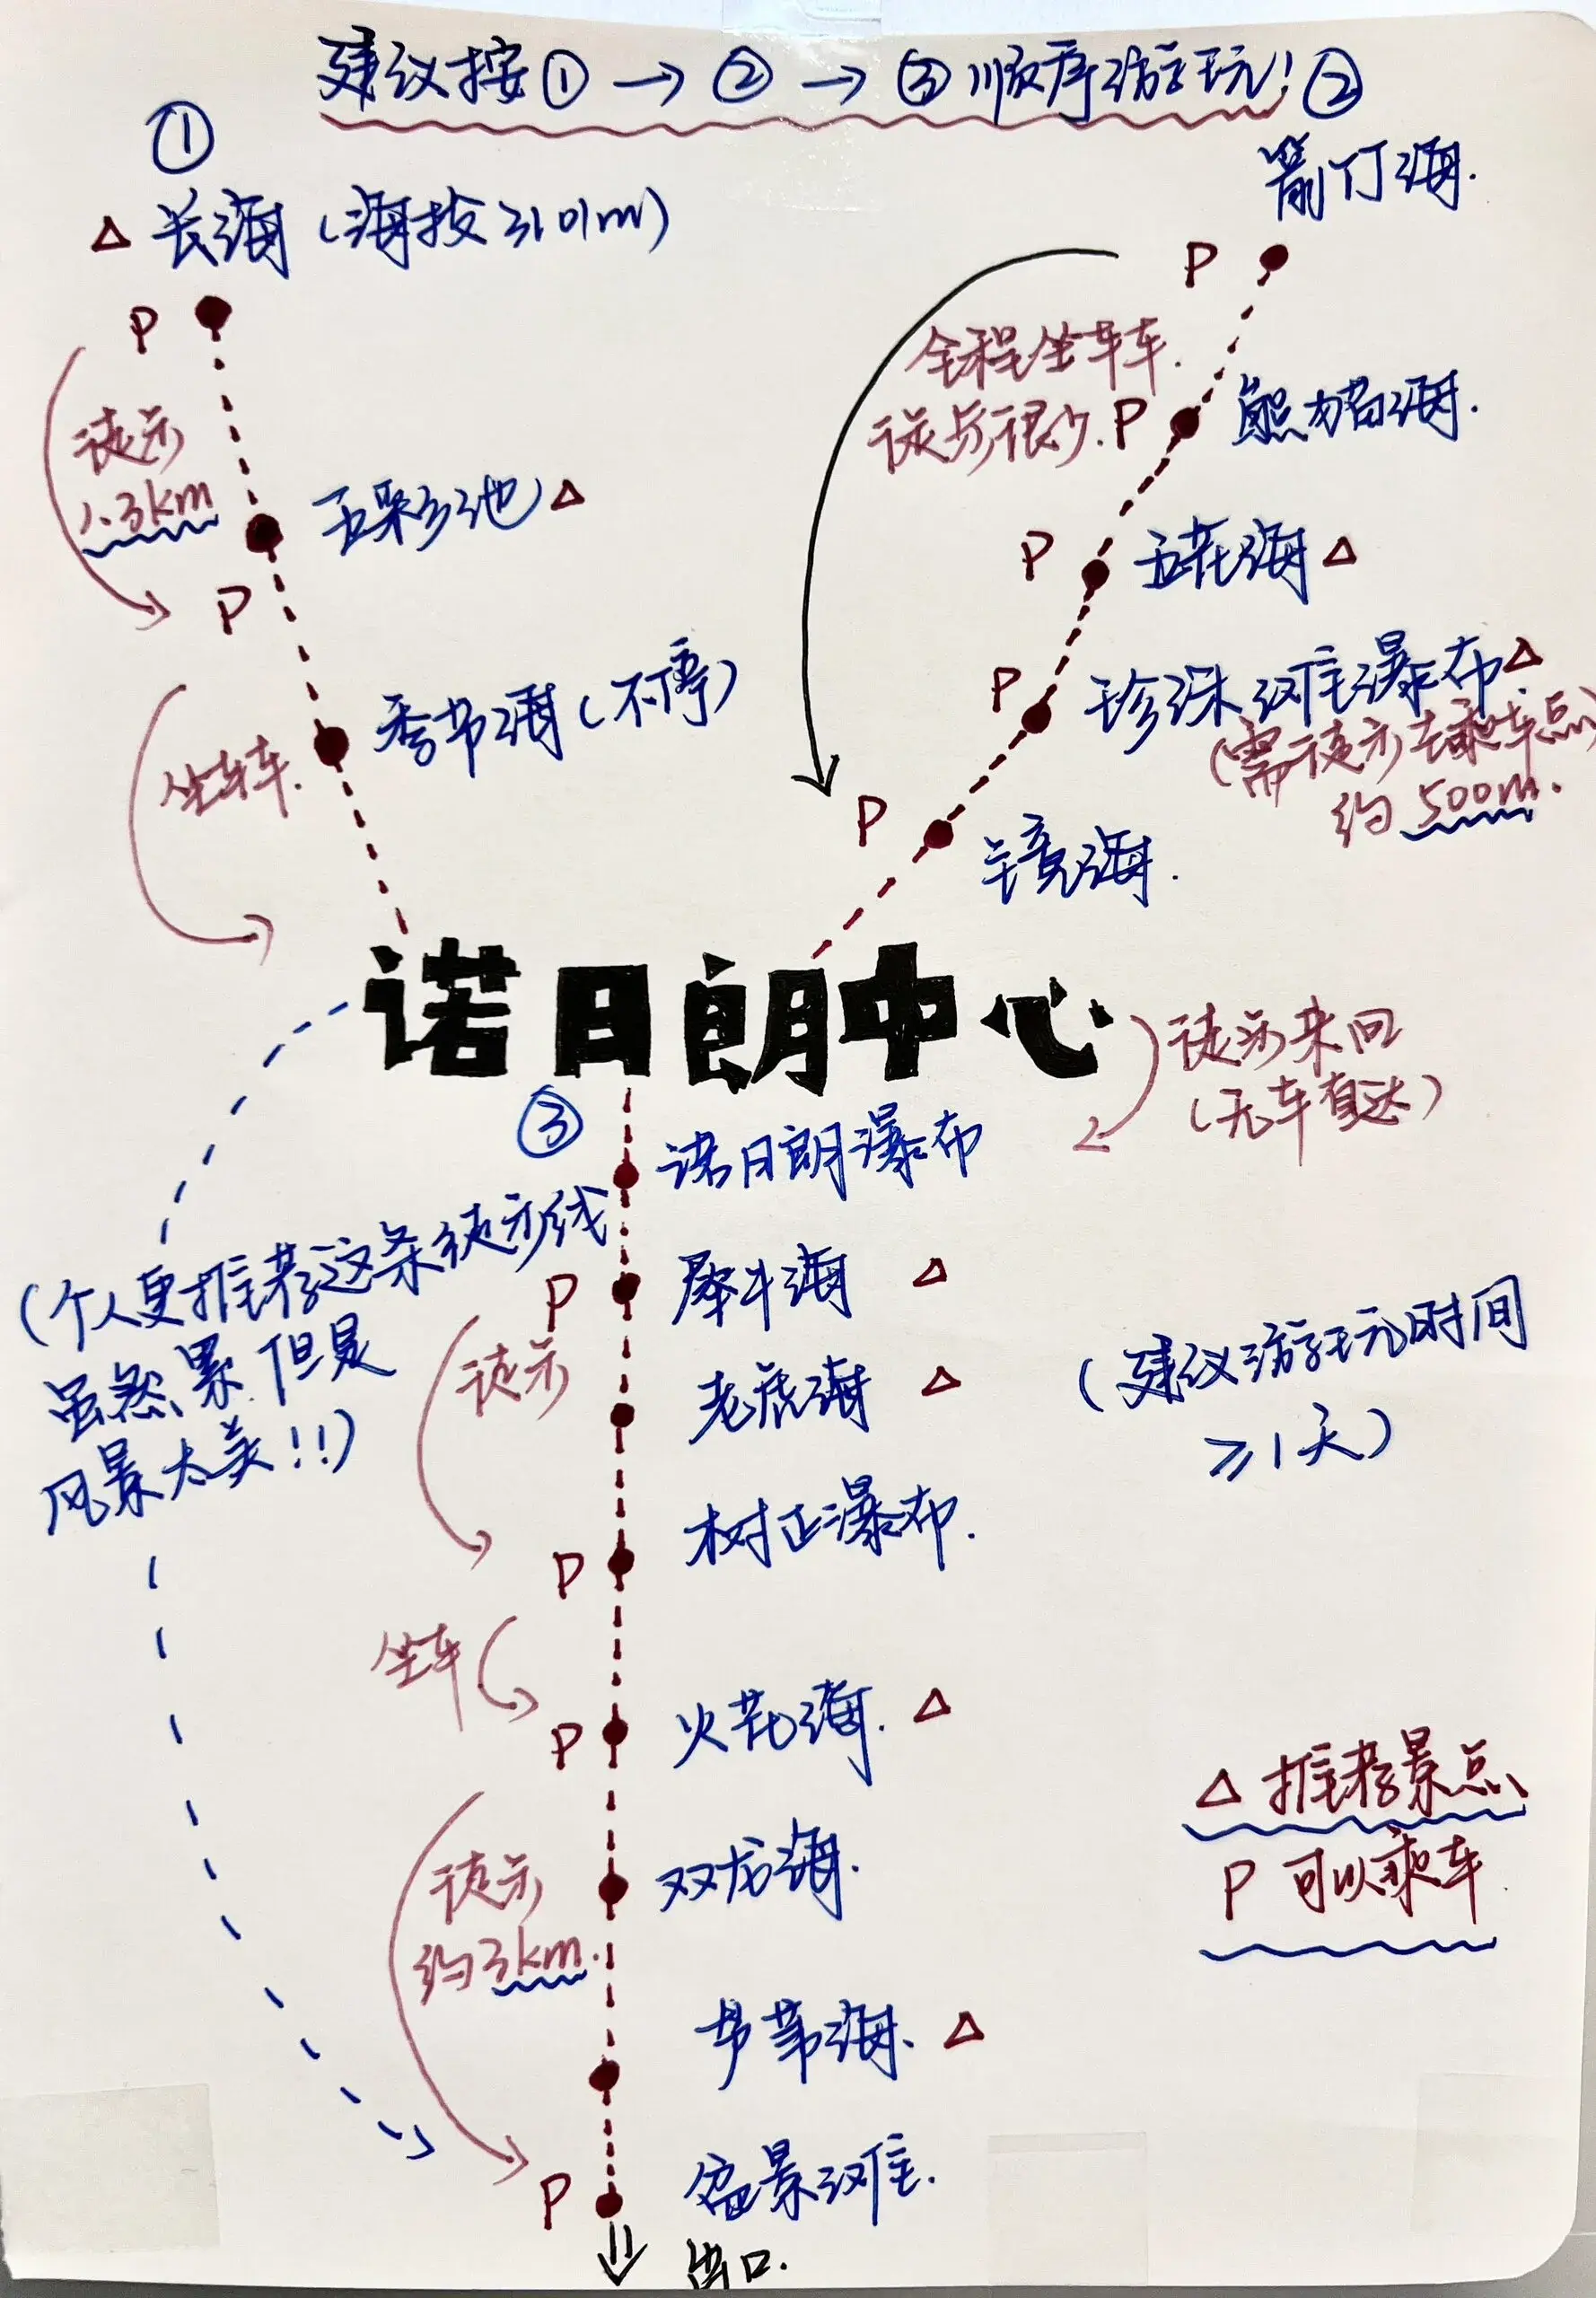 建议按①→②→③顺序游玩!
①
△长海(海拔3101m)
P
徒步
1.3km
五彩池△
P
季节海(不停)
坐车车.
②
箭竹海.
P
全程坐车车.
徒步很少.
P
熊猫海.
P
五花海△
P
珍珠滩瀑布△
(需徒步去乘车点)
约500m.
P
镜海.
诺日朗中心
徒步来回
(无车直达)
③
诺日朗瀑布
(个人更推荐这条徒步线
虽然累但是
风景太美!!)
P
犀牛海 △
徒步
老虎海 △
(建议游玩时间
≥1天)
树正瀑布.
P
坐车
P
火花海. △
徒步
约3km.
双龙海.
△推荐景点
P可以乘车
芦苇海. △
P
盆景滩.
出口.